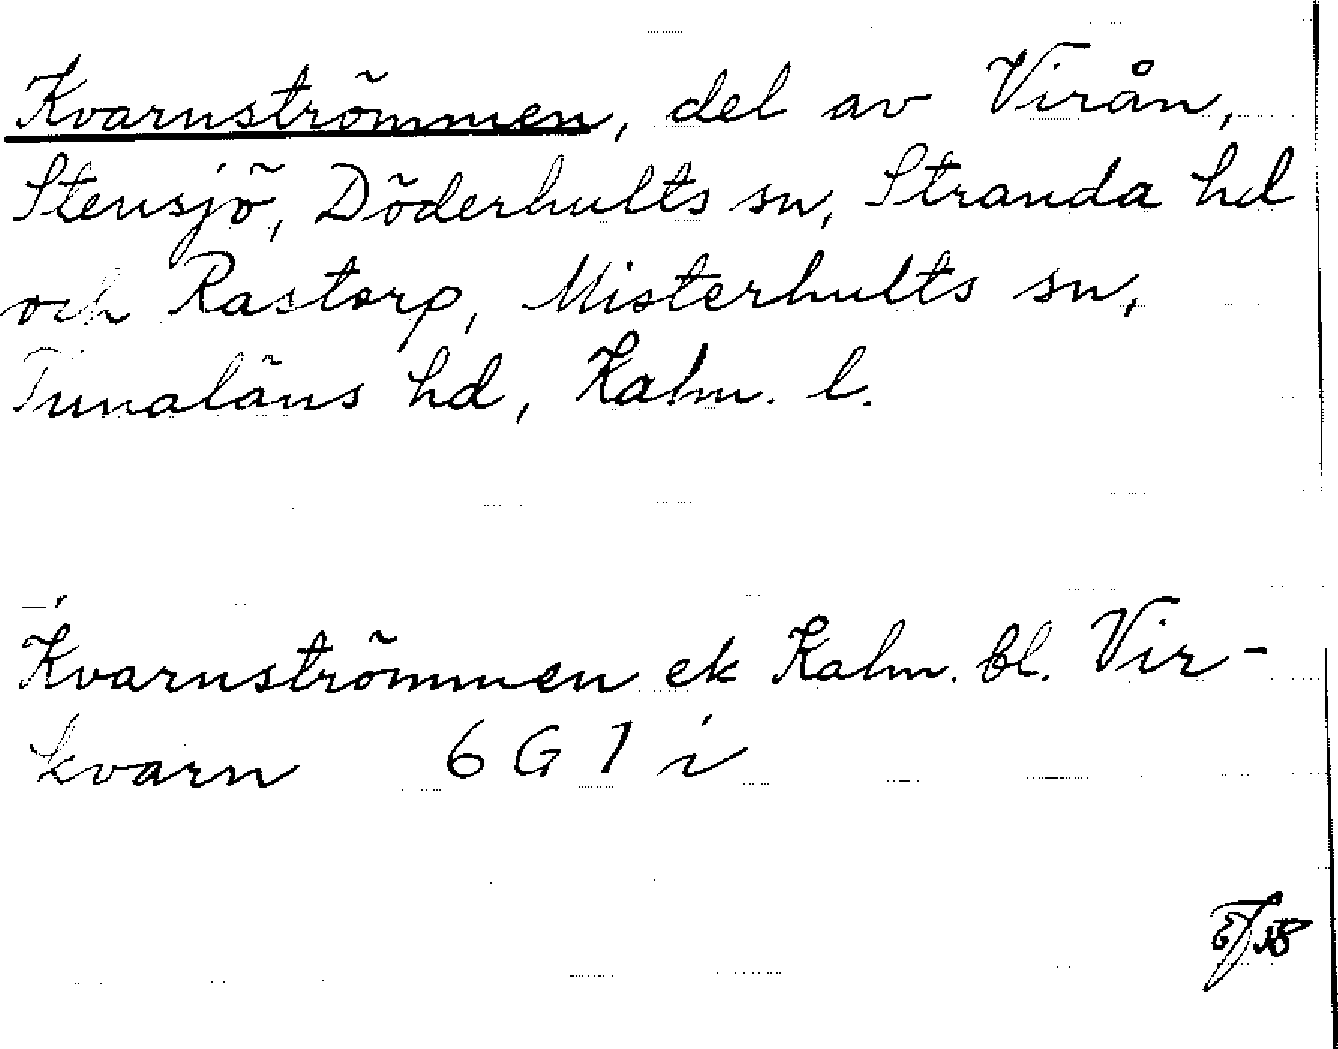 Kvarnströmmen, del av Virån,
Stensjö, Döderhults sn, Stranda hd
och Rastorp, Misterhults sn,
Tunaläns hd, Kalm. l.
Kvarnströmmen ek Kalm. bl. Vir-
kvarn 6 G 1 i